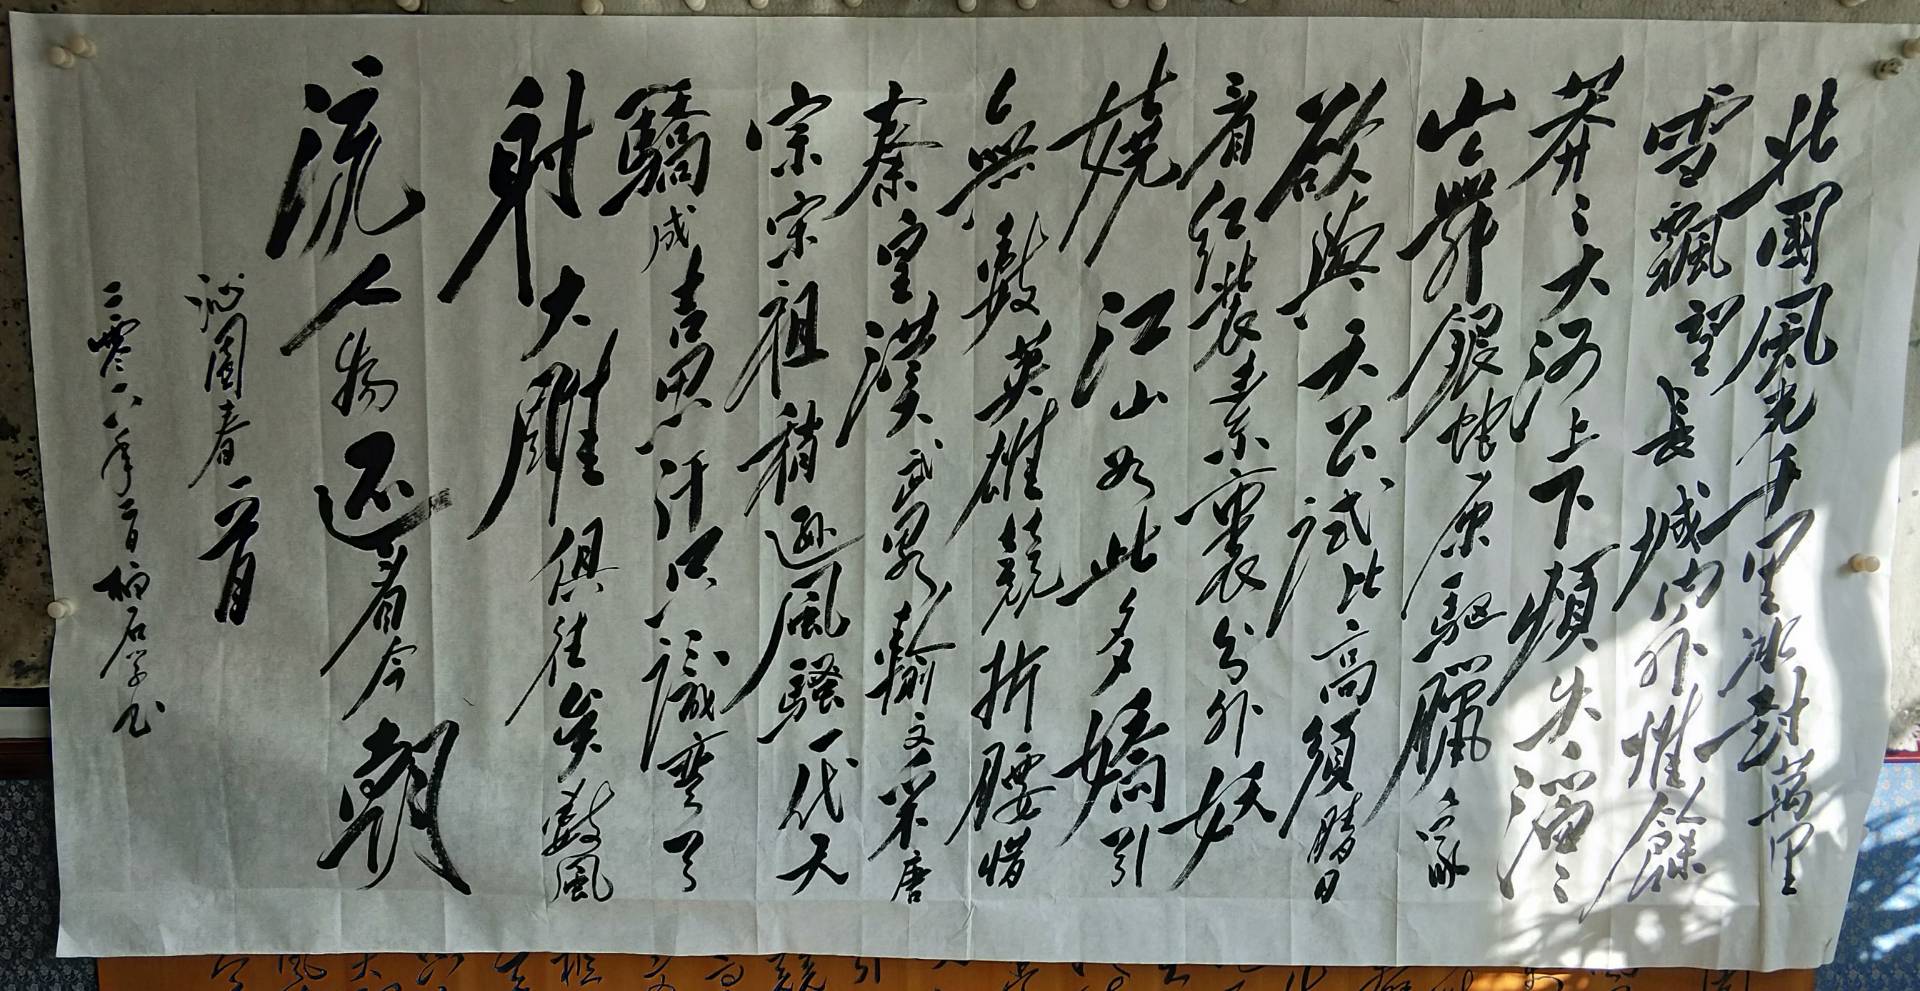 北國風光千里冰封萬里
雪飄望長城内外惟餘
莽〻大河上下頓失滔〻
山舞銀蛇原馳臘象
欲與天公試比高須晴日
看红裝素裹分外妖
嬈江山如此多嬌引
無數英雄競折腰惜
秦皇漢武略輸文采唐
宗宋祖稍遜風騷一代天
驕成吉思汗只識彎弓
射大雕俱往矣數風
流人物还看今朝
沁園春一首
二零一八年二月柏石学书